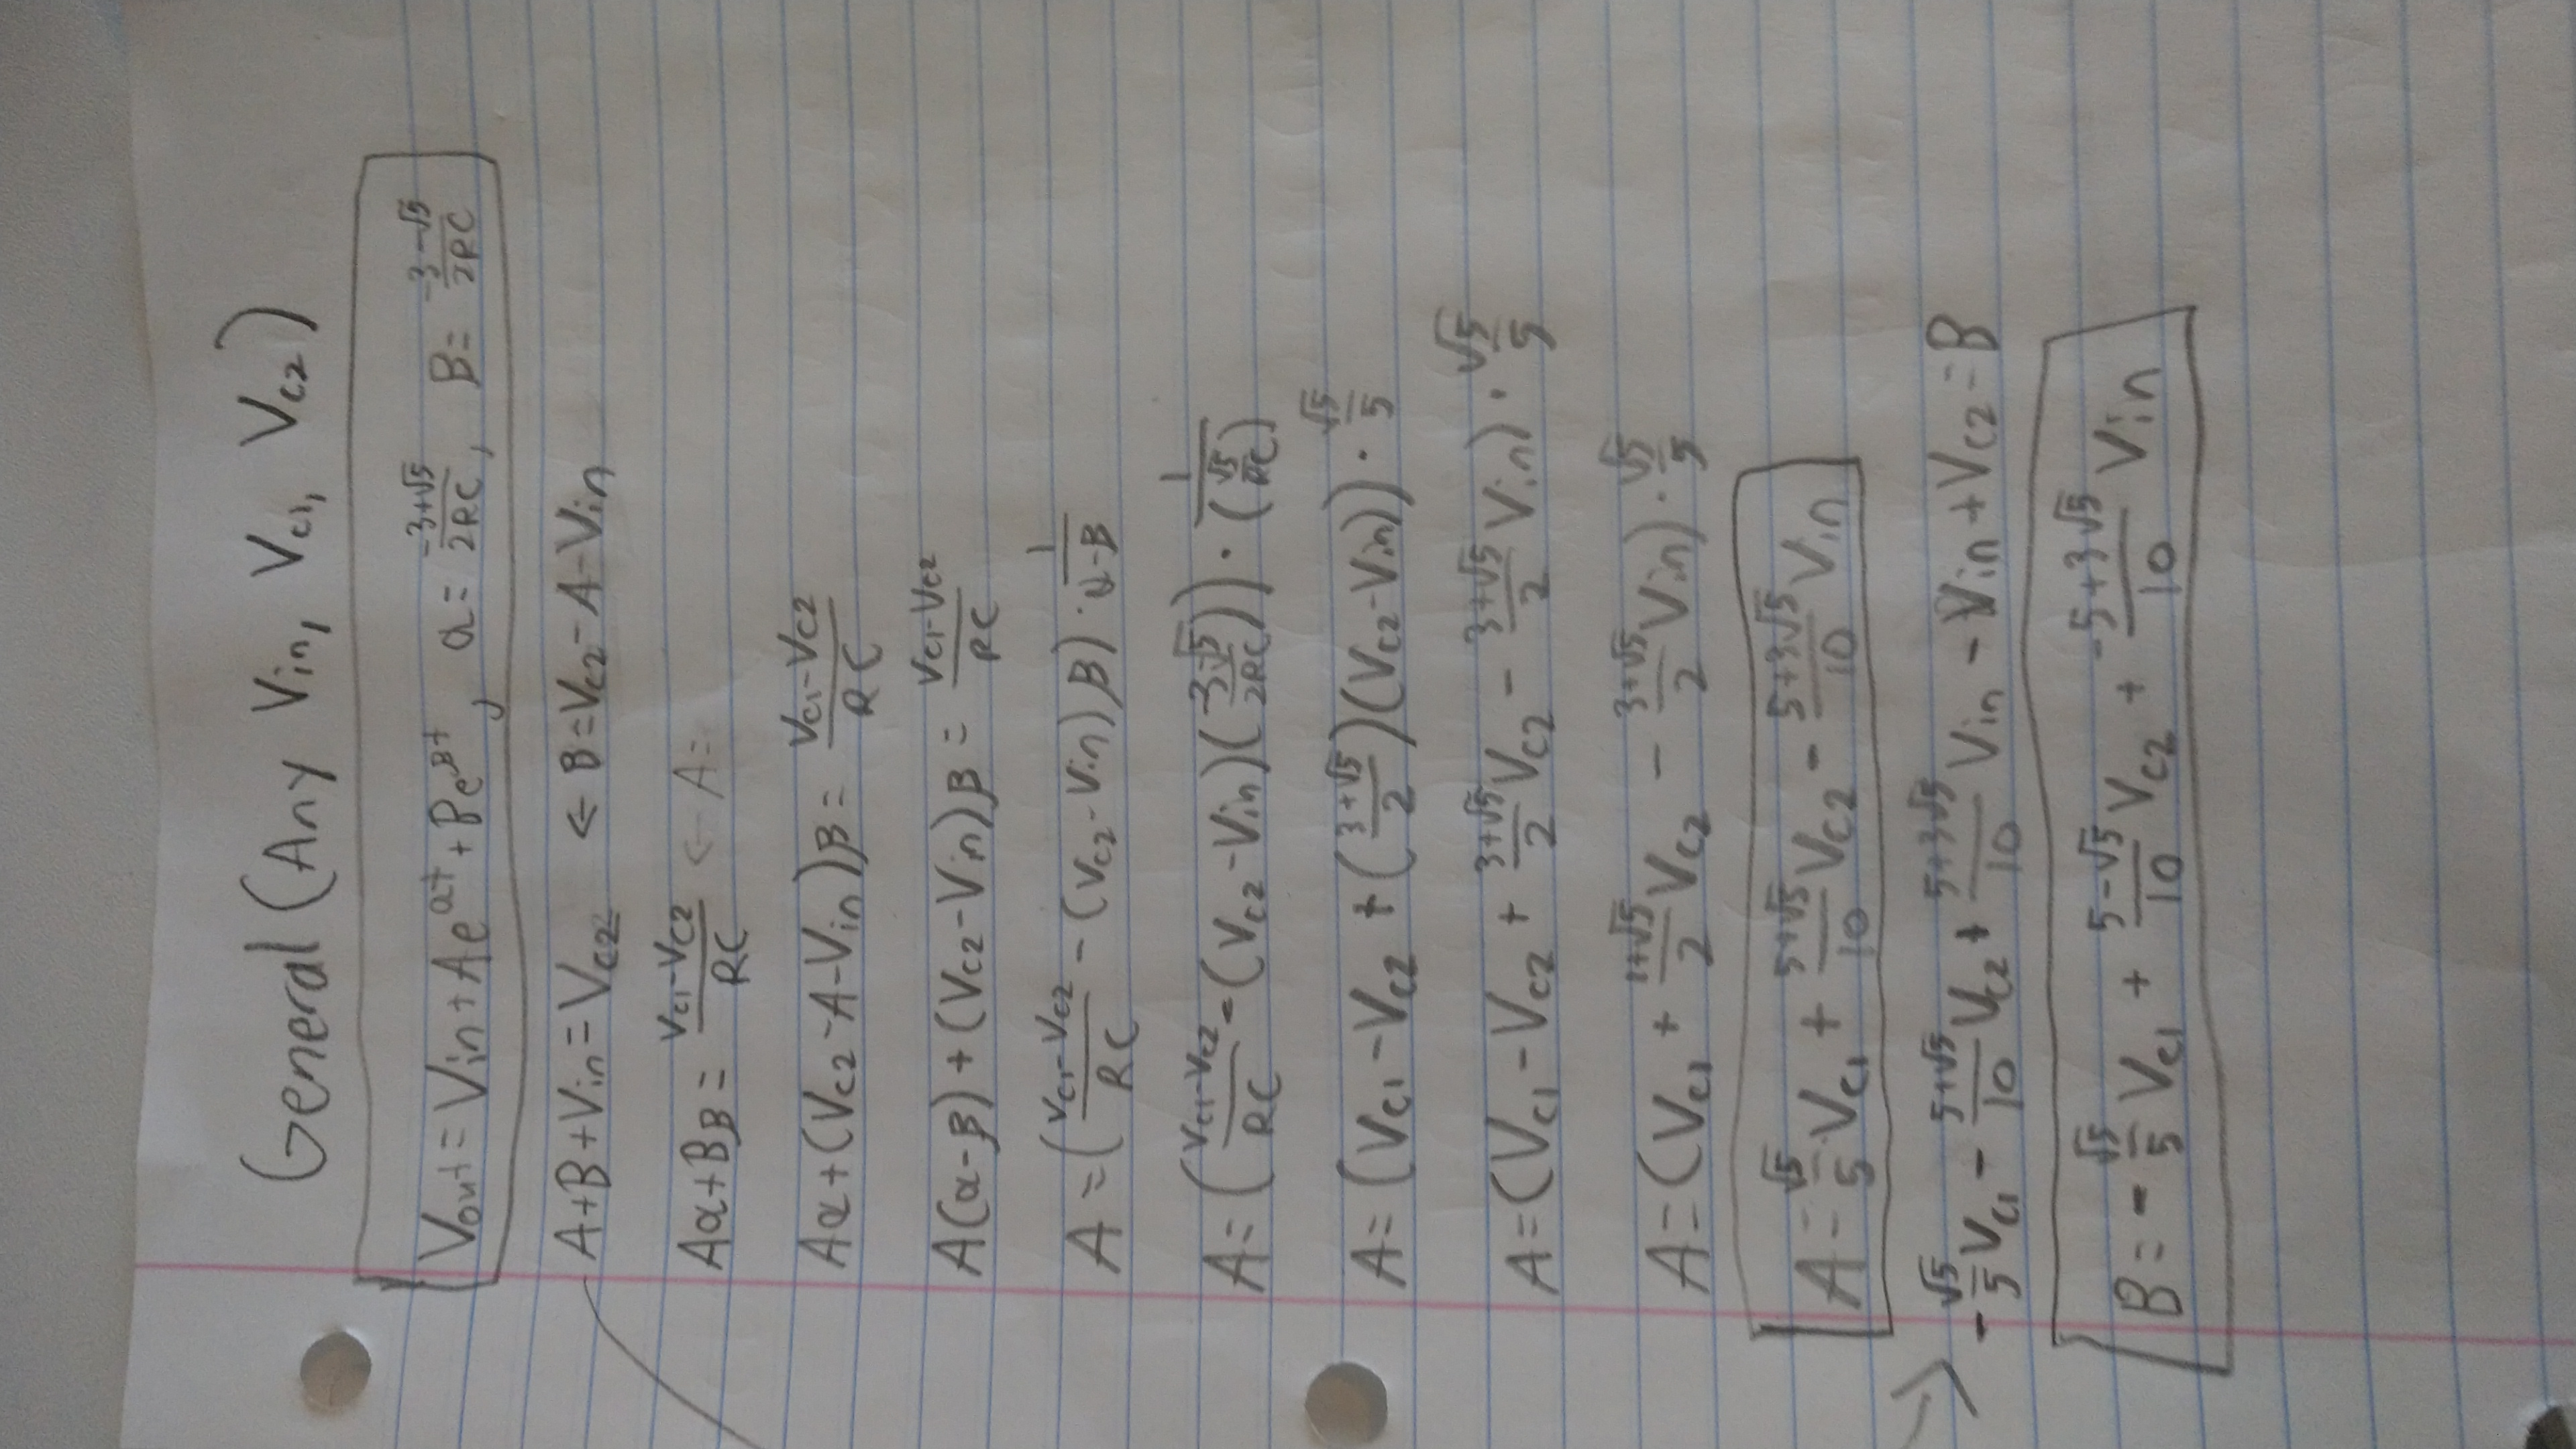 General (Any Vin, Vc1, Vc2)
Vout = Vin + Ae^αt + Be^βt, α = (-3+√5)/(2RC), β = (-3-√5)/(2RC)
A+B+Vin = Vc2 ← B = Vc2 - A - Vin
Aα + Bβ = (Vc1 - Vc2)/(RC) ← A =
Aα + (Vc2 - A - Vin)β = (Vc1 - Vc2)/(RC)
A(α-β) + (Vc2 - Vin)β = (Vc1 - Vc2)/(RC)
A = ((Vc1 - Vc2)/(RC) - (Vc2 - Vin)β) · 1/(α-β)
A = ((Vc1 - Vc2)/(RC) - (Vc2 - Vin)((-3-√5)/(2RC))) · 1/(√5/(RC))
A = (Vc1 - Vc2 + ((3+√5)/2)(Vc2 - Vin)) · √5/5
A = (Vc1 - Vc2 + (3+√5)/2 Vc2 - (3+√5)/2 Vin) · √5/5
A = (Vc1 + (1+√5)/2 Vc2 - (3+√5)/2 Vin) · √5/5
A = √5/5 Vc1 + (5+√5)/10 Vc2 - (5+3√5)/10 Vin
→ -√5/5 Vc1 - (5+√5)/10 Vc2 + (5+3√5)/10 Vin - Vin + Vc2 = B
B = -√5/5 Vc1 + (5-√5)/10 Vc2 + (-5+3√5)/10 Vin